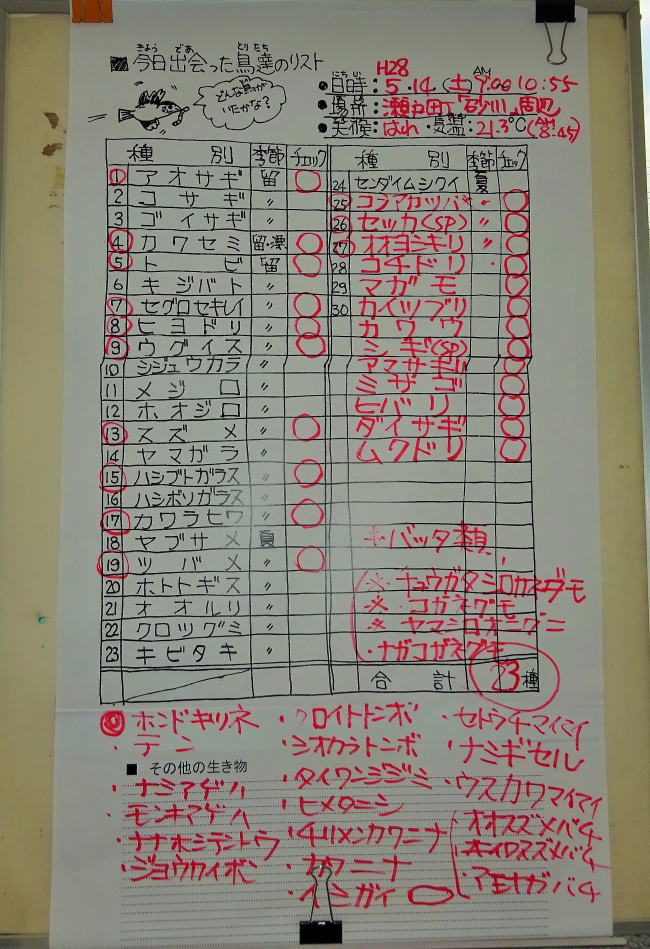 ■今日出会った鳥達のリスト
きょう であ とり たち
どんな鳥がいたかな?
H28
●日時:5.14(土)AM 9:00 10:55
にちじ
●場所:瀬戸田町「砂川」周辺
●天候:はれ・気温:21.3℃(AM 8:45)
種 別 季節 チェック
① アオサギ 留 ○
2 コサギ 〃
3 ゴイサギ 〃
④ カワセミ 留・漂 ○
⑤ トビ 留 ○
6 キジバト 〃
⑦ セグロセキレイ 〃 ○
⑧ ヒヨドリ 〃 ○
⑨ ウグイス 〃 ○
10 シジュウカラ 〃
11 メジロ 〃
12 ホオジロ 〃
⑬ スズメ 〃 ○
14 ヤマガラ 〃
⑮ ハシブトガラス 〃 ○
16 ハシボソガラス 〃
⑰ カワラヒワ 〃 ○
18 ヤブサメ 夏
⑲ ツバメ 〃 ○
20 ホトトギス 〃
21 オオルリ 〃
22 クロツグミ 〃
23 キビタキ 〃
種 別 季節 チェック
24 センダイムシクイ 夏
25 コシアカツバメ 〃 ○
26 セッカ(SP) 〃 ○
27 オオヨシキリ 〃 ○
28 コチドリ ○
29 マガモ ○
30 カイツブリ ○
カワウ ○
シギ(SP) ○
アマサギ ○
ミサゴ ○
ヒバリ ○
ダイサギ ○
ムクドリ ○
※バッタ類
※・チュウガタシロカネグモ
※・コガネグモ
※・ヤマシロオニグモ
・ナガコガネグモ
合 計 23種
◎ホンドキツネ
・テン
■ その他の生き物
・ナミアゲハ
・モンキアゲハ
・ナナホシテントウ
・ジョウカイボン
・クロイトトンボ
・シオカラトンボ
・タイワンシジミ
・ヒメタニシ
・チリメンカワニナ
・カワニナ
・イシガイ
・セトウチマイマイ
・ナミギセル
・ウスカワマイマイ
・オオスズメバチ
・キイロスズメバチ
・アシナガバチ